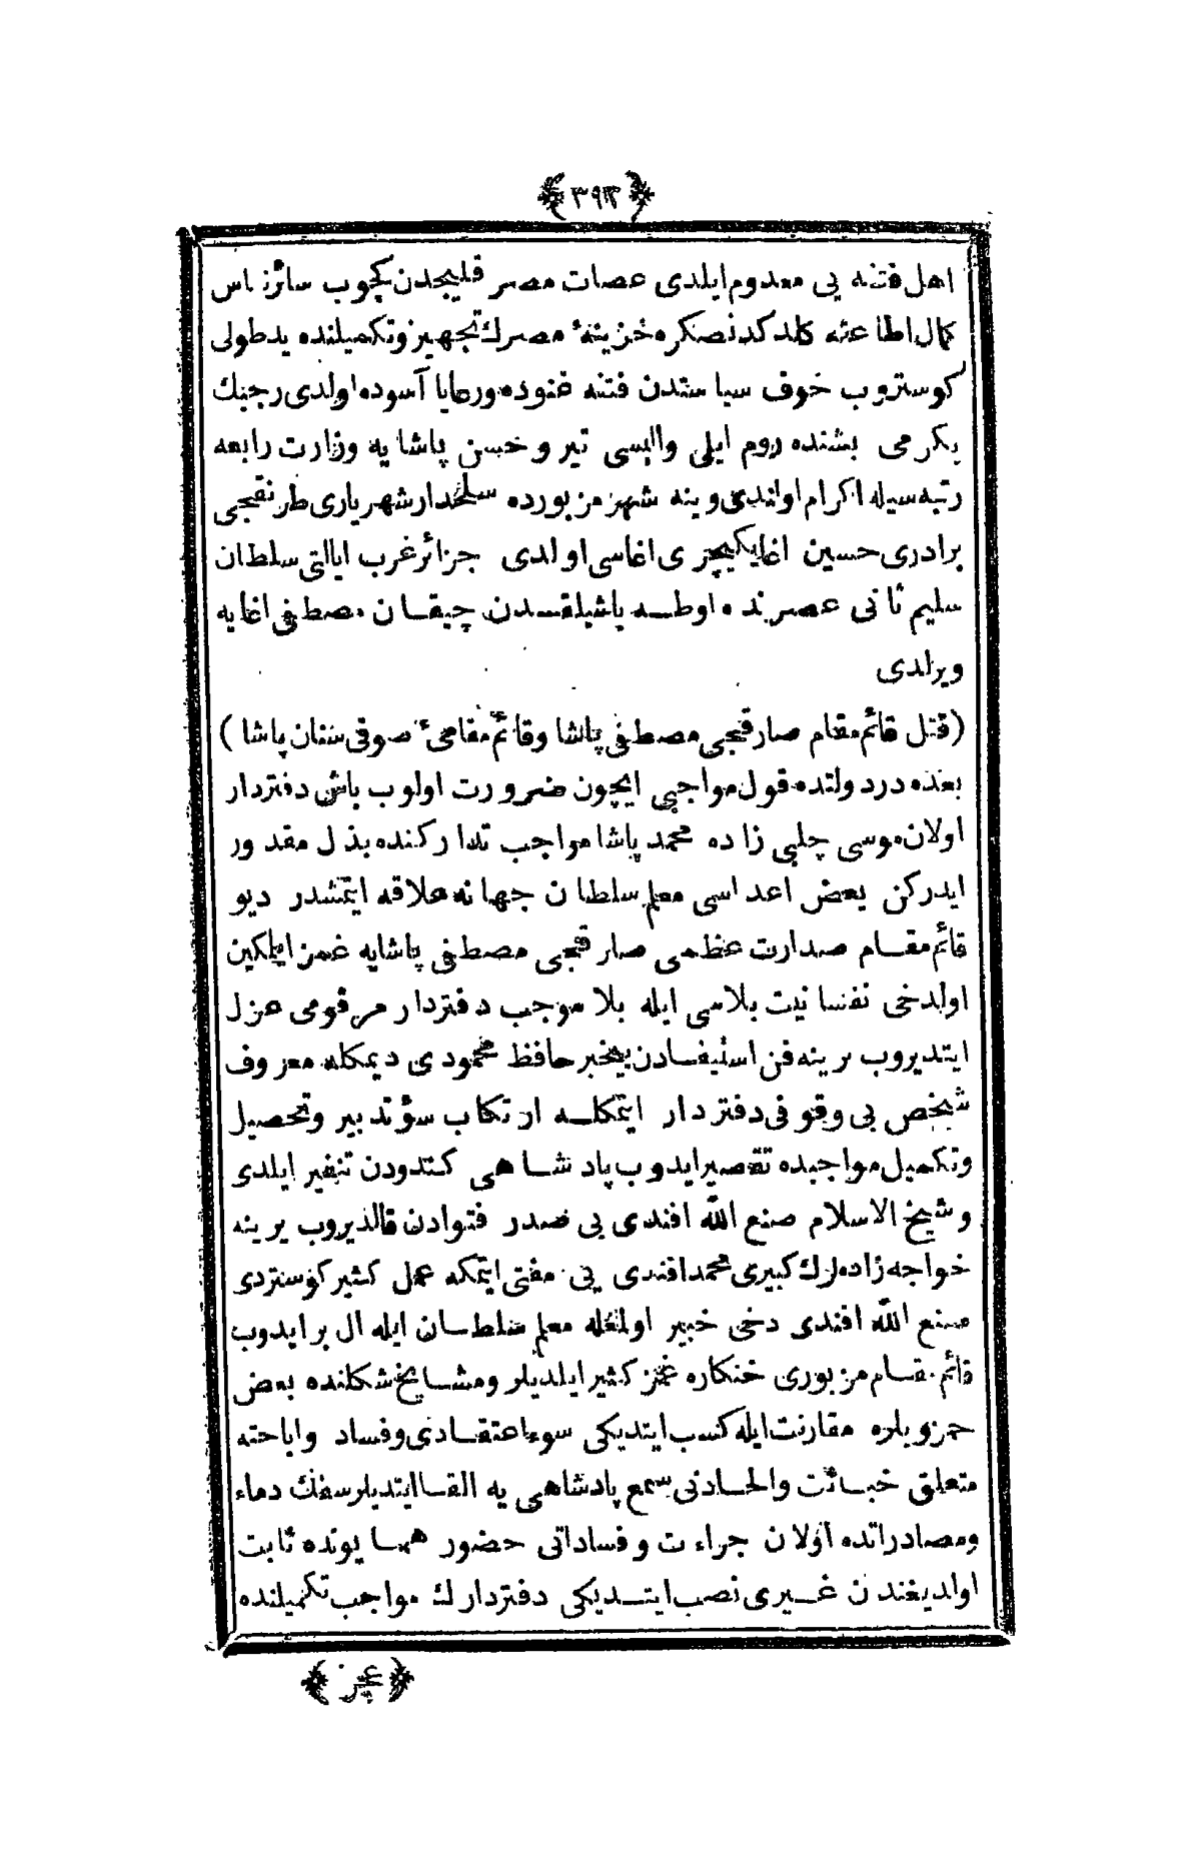 ﴿٣٩٣﴾
اهل فتنه یی معدوم ایلدی عصات مصر قلیجدن کچوب سائر ناس
کمال اطاعته کلدکدنصکره خزینهٔ مصرك تجهیز وتکمیلنده ید طولی
کوستروب خوف سیاستدن فتنه غنوده ورعایا آسوده اولدی رجبك
یکرمی بشنده روم ایلی والیسی تیر و حسن پاشایه وزارت رابعه
رتبه سیله اکرام اولندی وینه شهر مزبورده سلحدار شهریاری طرنقجی
برادری حسین اغا یکیچری اغاسی اولدی جزائر غرب ایالتی سلطان
سلیم ثانی عصرنده اوطه باشیلقدن چیقان مصطفی اغایه
ویرلدی
(قتل قائم مقام صارقجی مصطفی پاشا وقائم مقامیٔ صوفی سنان پاشا)
بعده دردولتده قول مواجبی ایچون ضرورت اولوب باش دفتردار
اولان موسی چلبی زاده محمد پاشا مواجب تدارکنده بذل مقدور
ایدرکن بعض اعداسی معلم سلطان جهانه علاقه ایتمشدر دیو
قائم مقام صدارت عظمی صارقجی مصطفی پاشایه غمز ایلکین
اولدخی نفسانیت بلاسی ایله بلا موجب دفتردار مرقومی عزل
ایتدیروب یرینه فن استیفادن بیخبر حافظ محمودی دیمکله معروف
شخص بی وقوفی دفتردار ایتمکله ارتکاب سؤ تدبیر وتحصیل
وتکمیل مواجبده تقصیر ایدوب پادشاهی کندودن تنفیر ایلدی
وشیخ الاسلام صنع الله افندی یی صدر فتوادن قالدیروب یرینه
خواجه زاده لرك کبیری محمد افندی یی مفتی ایتمکه عمل کثیر کوستردی
صنع الله افندی دخی خبیر اولمغله معلم سلطان ایله ال بر ایدوب
قائم مقام مزبوری خنکاره غمز کثیر ایلدیلر ومشایخ شکلنده بعض
حمزویلره مقارنت ایله کسب ایتدیکی سوء اعتقادی وفساد واباحته
متعلق خبائت والحادنی سمع پادشاهی یه القا ایتدیلر سفك دماء
ومصادراتده اولان جراءت وفساداتی حضور همایونده ثابت
اولدیغندن غیری نصب ایتدیکی دفتردارك مواجب تکمیلنده
﴿عجز﴾